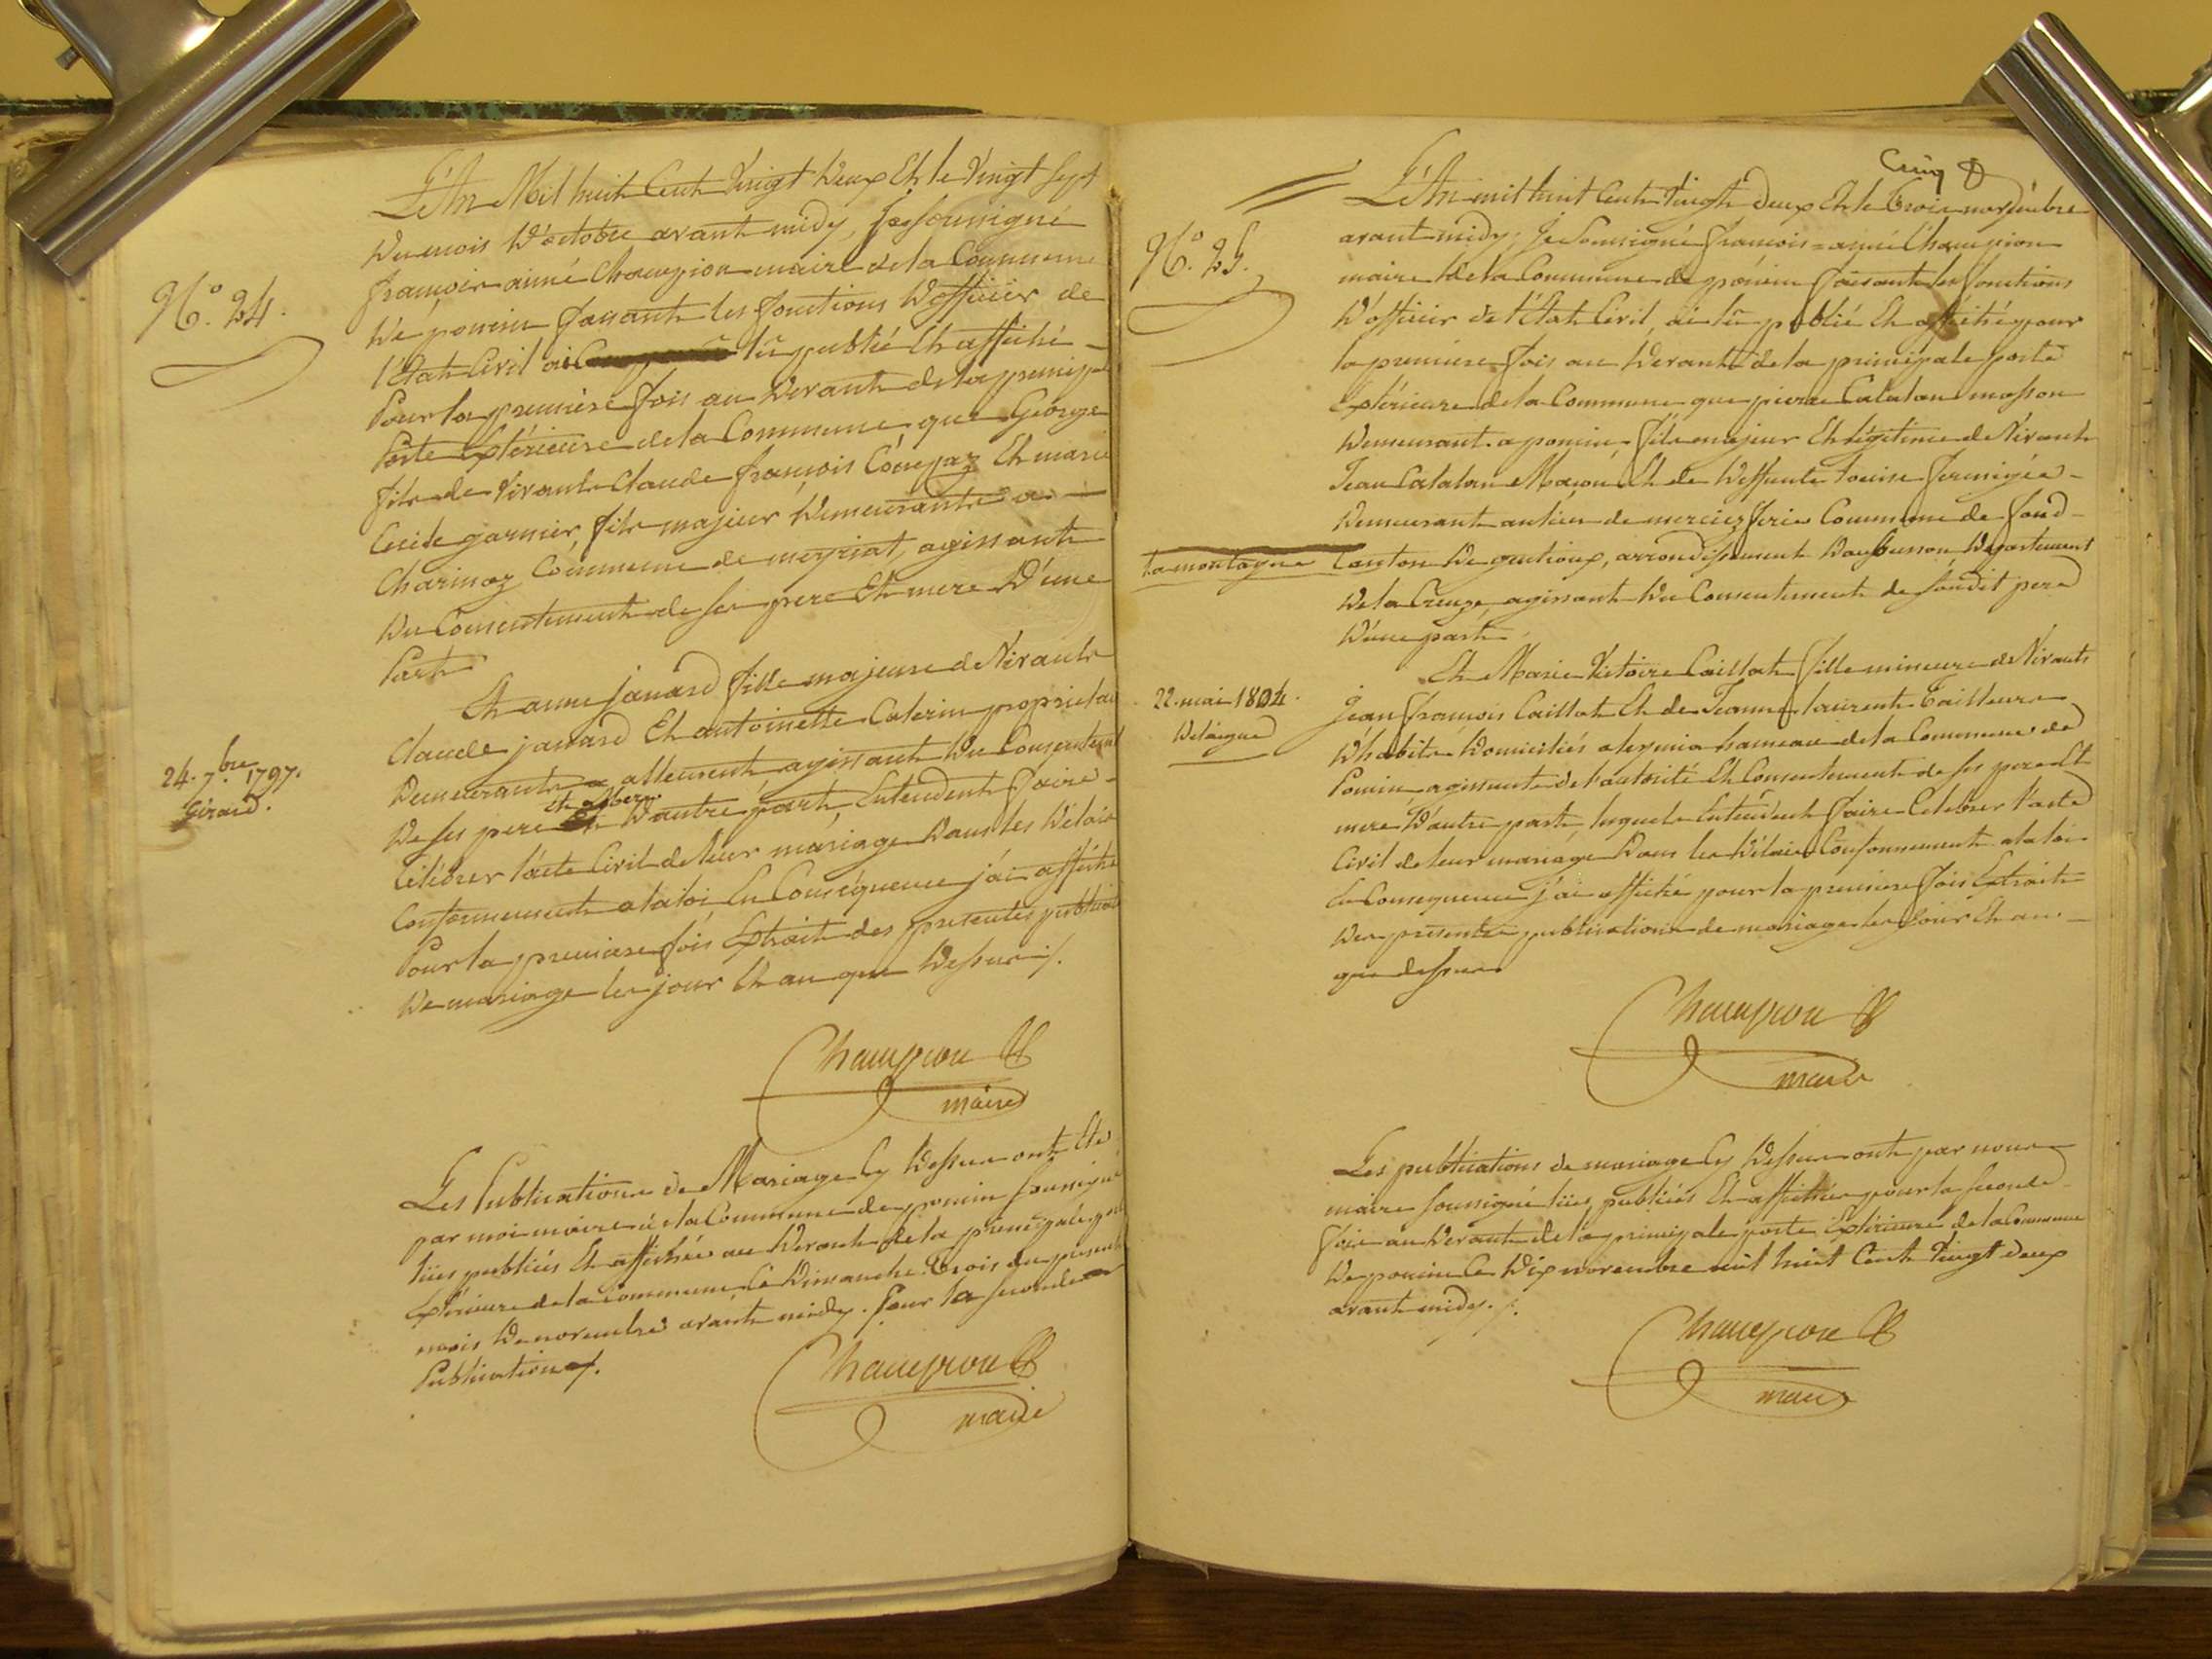 N.° 24.
L'An Mil huit Cent Vingt deux Et le Vingt sept
du mois d'octobre avant midy, Je soussigné
françois aimé Champion maire de la Commune
de poncin faisant les fonctions d'officier de
l'État Civil ai lû publié Et affiché
Pour la première fois au devant de la principale
Porte Extérieure de la Commune que George
fils de Vivants Claude françois Et marie
Cécile garnier, fils majeur demeurant a
Charinaz Commune de meyriat, agissant
du Consentement de ses pere Et mere D'une
Part
Et anne janard fille majeure de Vivants
Claude janard Et antoinette Caterin
Demeurants a allement agissant du Consentement
24. 7.bre 1797.
Girard.
De ses pere Et mere D'autre part, Entendent faire
Célébrer l'acte Civil de leur mariage dans les Délais
Conformement a la loi En Conséquence j'ai affiché
Pour la premiere fois Extrait des presentes publications
De mariage les jour Et an que dessus ./.
Champion
maire
Les Publications de Mariage Cy dessus ont Eté
par moi maire de la Commune de poncin soussigné
lües publiées Et affichées au devant de la principale porte
Extérieure de la Commune le Dimanche trois du present
mois de novembre avant midy. Pour la seconde
Publication ./.
Champion
maire
Cinq
N.° 25.
L'An mil huit Cent Vingt deux Et le trois novembre
avant midy; Je Soussigné françois=aimé Champion
maire de la Commune de poncin faisant les fonctions
D'officier de l'État Civil, ai lû publié Et affiché pour
la premiere fois au devant de la principale porte
Extérieure de la Commune que pierre Catalan masson
demeurant a poncin, fils majeur Et légitime de Vivant
Jean Catalan Maçon Et de deffunte Louise
demeurant au lieu de Commune de
la montagne Canton de gentioux, arrondissement d'aubusson Département
De la Creuze, agissant du Consentement de sondit pere
D'une part
Et Marie Victoire Caillat fille mineure de Vivants
22. mai 1804.
Jean françois Caillat Et de Jeanne laurent Tailleur
D'habits domiciliés a leymia hameau de la Commune de
Poncin, agissante de l'autorité Et Consentement de ses pere Et
mere D'autre part, lesquels Entendent faire Celebrer l'acte
Civil de leur mariage Dans les Délais Conformement a la loi
En Consequence j'ai affiché pour la premiere fois Extrait
Des presentes publications de mariage les jour Et an
que dessus
Champion
maire
Les publications de mariage Cy dessus ont par nous
maire soussigné lües, publiées Et affichées pour la seconde
fois au devant de la principale porte Extérieure de la Commune
De poncin le Dix novembre mil huit Cent Vingt deux
avant midy. ./.
Champion
maire